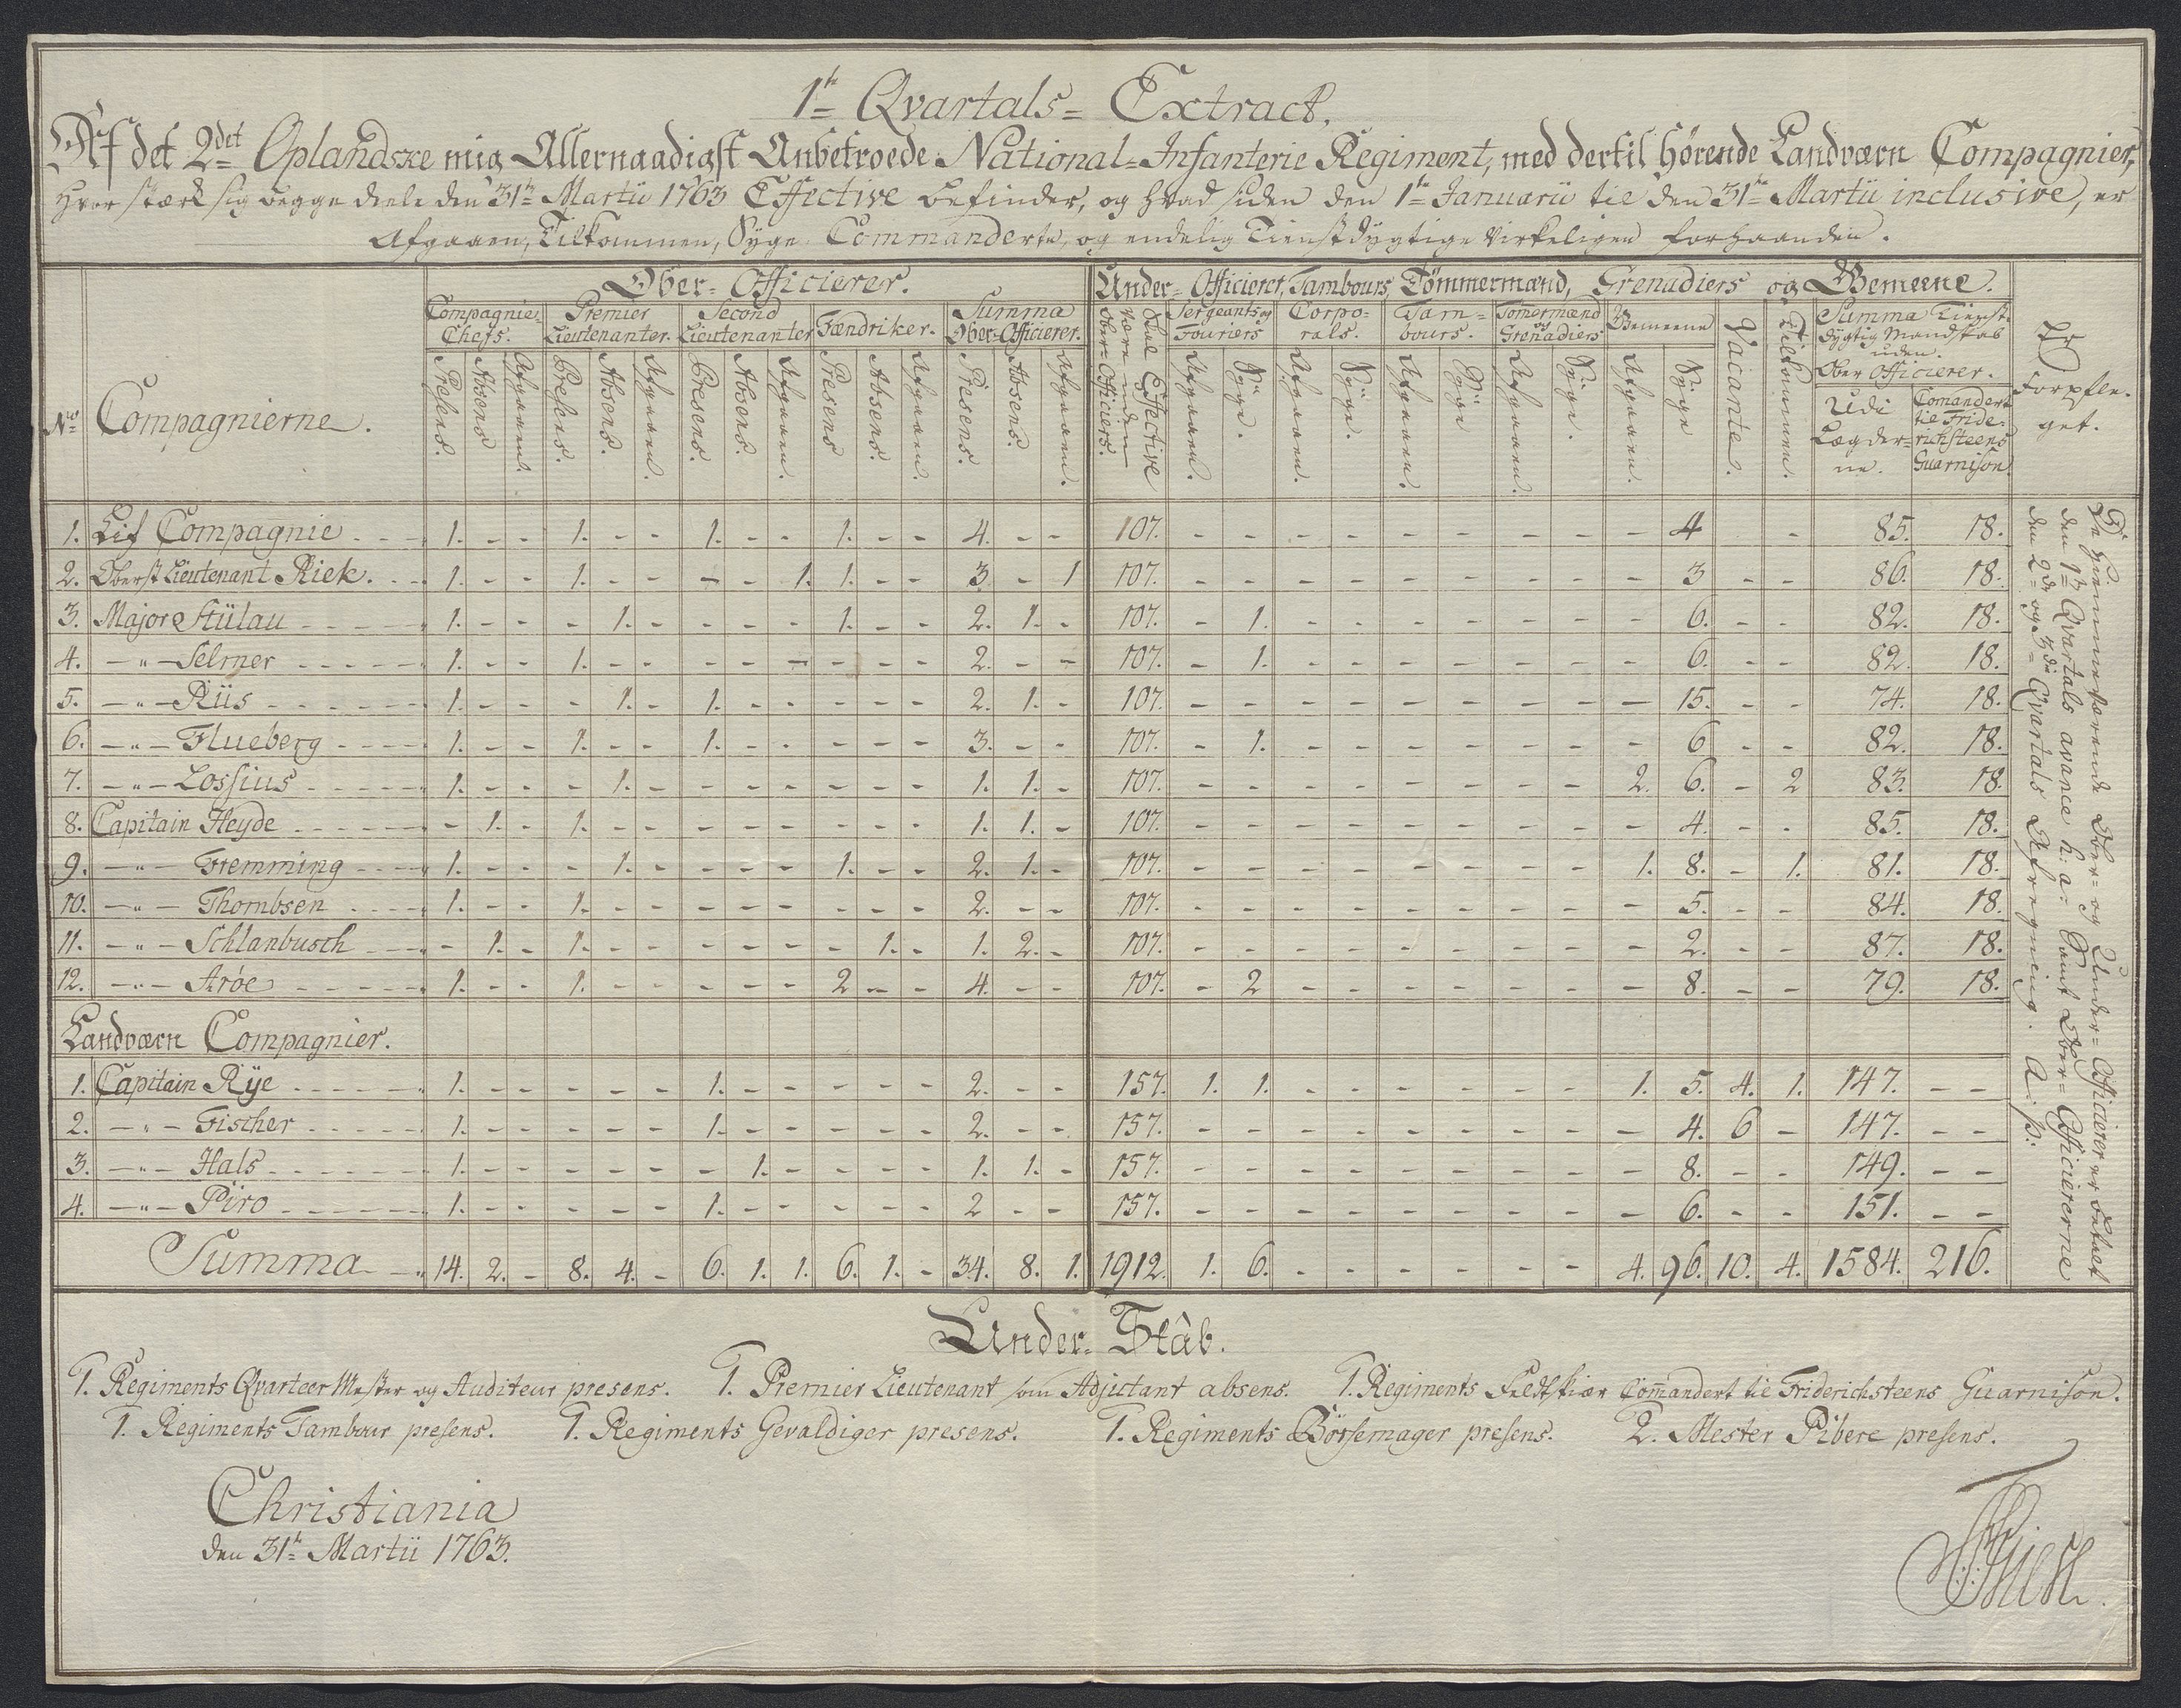 1te Qvartals= Extract.
Af det 2det Oplandske mig Allernaadigst Anbetroede National=Infanterie Regiment, med dertil hørende Landværn Compagnier,
hvor stærk sig begge deele den 31te Martii 1763 Effective befinder, og hvad siden den 1te Januarii til den 31te Martii inclusive, er
Afgaaen, Tilkommen, Syge, Commanderte, og endelig Tienstdygtige Virkeligen forhaanden.
Ober=Officierer. Under=Officierer, Tambours, Tømmermænd, Grenadiers og Gemeene.
No Compagnierne.
Compagnie=Chefs. Presens. Absens. Afgaaen.
Premier Lieutenanter. Presens. Absens. Afgaaen.
Second Lieutenanter Presens. Absens. Afgaaen.
Fændriker. Presens Absens. Afgaaen.
Summa Ober=Officierer. Presens. Absens. Afgaaen.
Skal Effective være uden Ober=Officiers.
Sergeants og Fouriers Afgaaen. Syge.
Corpo=rals. Afgaaen. Syge.
Tam=bours. Afgaaen. Syge
Tømermænd og Grenadiers Afgaaen. Syge.
Gemeene Afgaaen. Syge
Vacante.
Tilkommen.
Summa Tienst=dygtig Mandskab uden Ober Officierer.
Udi Lægder=ne.
Comandert til Fride=richsteens Guarnison.
Er Forpfle=get.
1. Lif Compagnie 1. - - 1. - - 1. - - 1. - - 4. - - 107. - - - - - - - - - 4 - 85. 18.
2. Oberst Lieutenant Riek. 1. - - 1. - - - - 1. 1. - - 3. - 1 107. - - - - - - - - - 3 - - 86. 18.
3. Major Stülau 1. - - - 1. - - - - 1. - - 2. 1. - 107. - 1. - - - - - - - 6. - - 82. 18.
4. -"- Selmer 1. - - 1. - - - - - - - - 2. - - 107. - 1. - - - - - - - 6. - - 82. 18.
5. -"- Riis 1. - - - 1. - 1. - - - - - 2. 1. - 107. - - - - - - - - - 15. - - 74. 18.
6. -"- Flueberg 1. - - 1. - - 1. - - - - - 3. - - 107. - 1. - - - - - - - 6 - - 82. 18.
7. -"- Lossius 1. - - - 1. - - - - - - - 1. 1. - 107. - - - - - - - - 2. 6. - 2 83. 18.
8. Capitain Heyde - 1. - 1. - - - - - - - - 1. 1. - 107. - - - - - - - - - 4. - - 85. 18.
9. -"- Fremming 1. - - - 1. - - - - 1. - - 2. 1. - 107. - - - - - - - - 1. 8. - 1. 81. 18.
10. -"- Thombsen 1. - - 1. - - - - - - - - 2. - - 107. - - - - - - - - - 5. - - 84. 18.
11. -"- Schlanbusch - 1. - 1. - - - - - - 1. - 1. 2. - 107. - - - - - - - - - 2. - - 87. 18.
12. -"- Arøe 1. - - 1. - - - - - 2 - - 4. - - 107. - 2 - - - - - - - 8. - - 79. 18.
Landværn Compagnier.
1. Capitain Rÿe 1. - - - - - 1. - - - - - 2. - - 157. 1. 1. - - - - - - 1. 5. 4. 1. 147. - -
2. -"- Fischer 1. - - - - - 1. - - - - - 2. - - 157. - - - - - - - - - 4. 6 - 147. - -
3. -"- Hals 1. - - - - - - 1. - - - - 1. 1. - 157. - - - - - - - - - 8. - - 149. - -
4. -"- Piro 1. - - - - - 1. - - - - - 2 - - 157. - - - - - - - - - 6. - - 151. - -
Summa 14. 2. - 8. 4. - 6. 1. 1. 6. 1. - 34. 8. 1. 1912. 1. 6. - - - - - - 4. 96. 10. 4. 1584. 216.
De hiemmeværende Ober= og Under=Officierer er betalt
den 1te Qvartals avance h: a: samt Ober=Officiererne
den 2de og 3die Qvartals Afregning. A: p:
Under=Stâb.
1. Regiments Qvarteer Mester og Auditeur presens. 1. Premier Lieutenant som Adjutant absens. 1. Regiments Feldtskiær Comandert til Friderichsteens Guarnison.
1. Regiments Tambour presens. 1. Regiments Gevaldiger presens. 1. Regiments Börsemager presens. 2. Mester Pibere presens.
Christiania
den 31te Martii 1763.